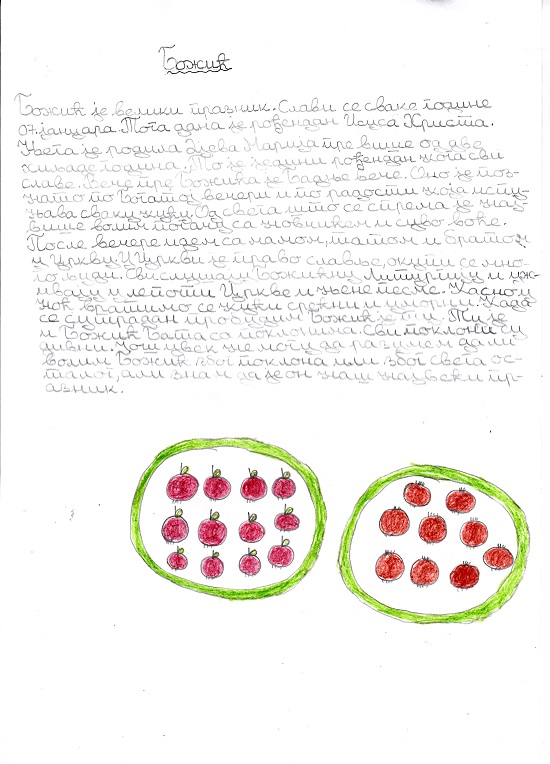 Божић
Божић је велики празник. Слави се сваке године
07. јануара. Тога дана је рођендан Исуса Христа.
Њега је родила Дјева Марија пре више од две
хиљаде година. То је једини рођендан кога сви
славе. Вече пре Божића је Бадње вече. Оно је поз-
нато по богатој вечери и по радости која испу-
њава сваку кућу. Од свега што се спрема је нај-
више волим погачу са новчићем и суво воће.
После вечере идем са мамом, татом и братом
у цркви. У цркви је право славље, окупи се мно-
го људи. Сви слушали Божићну Литургију и ужи-
вали у лепоти Цркве и њене песме. Касно у
ноћ вратимо се кући срећни и уморни. Када
се сутрадан пробудим Божић је ту. Ту је
и Божић Бата са поклонима. Сви поклони су
дивни. Још увек не могу да разумем да ли
волим Божић због поклона или због свега ос-
талог, али знам да је он наш највећи пр-
азник.